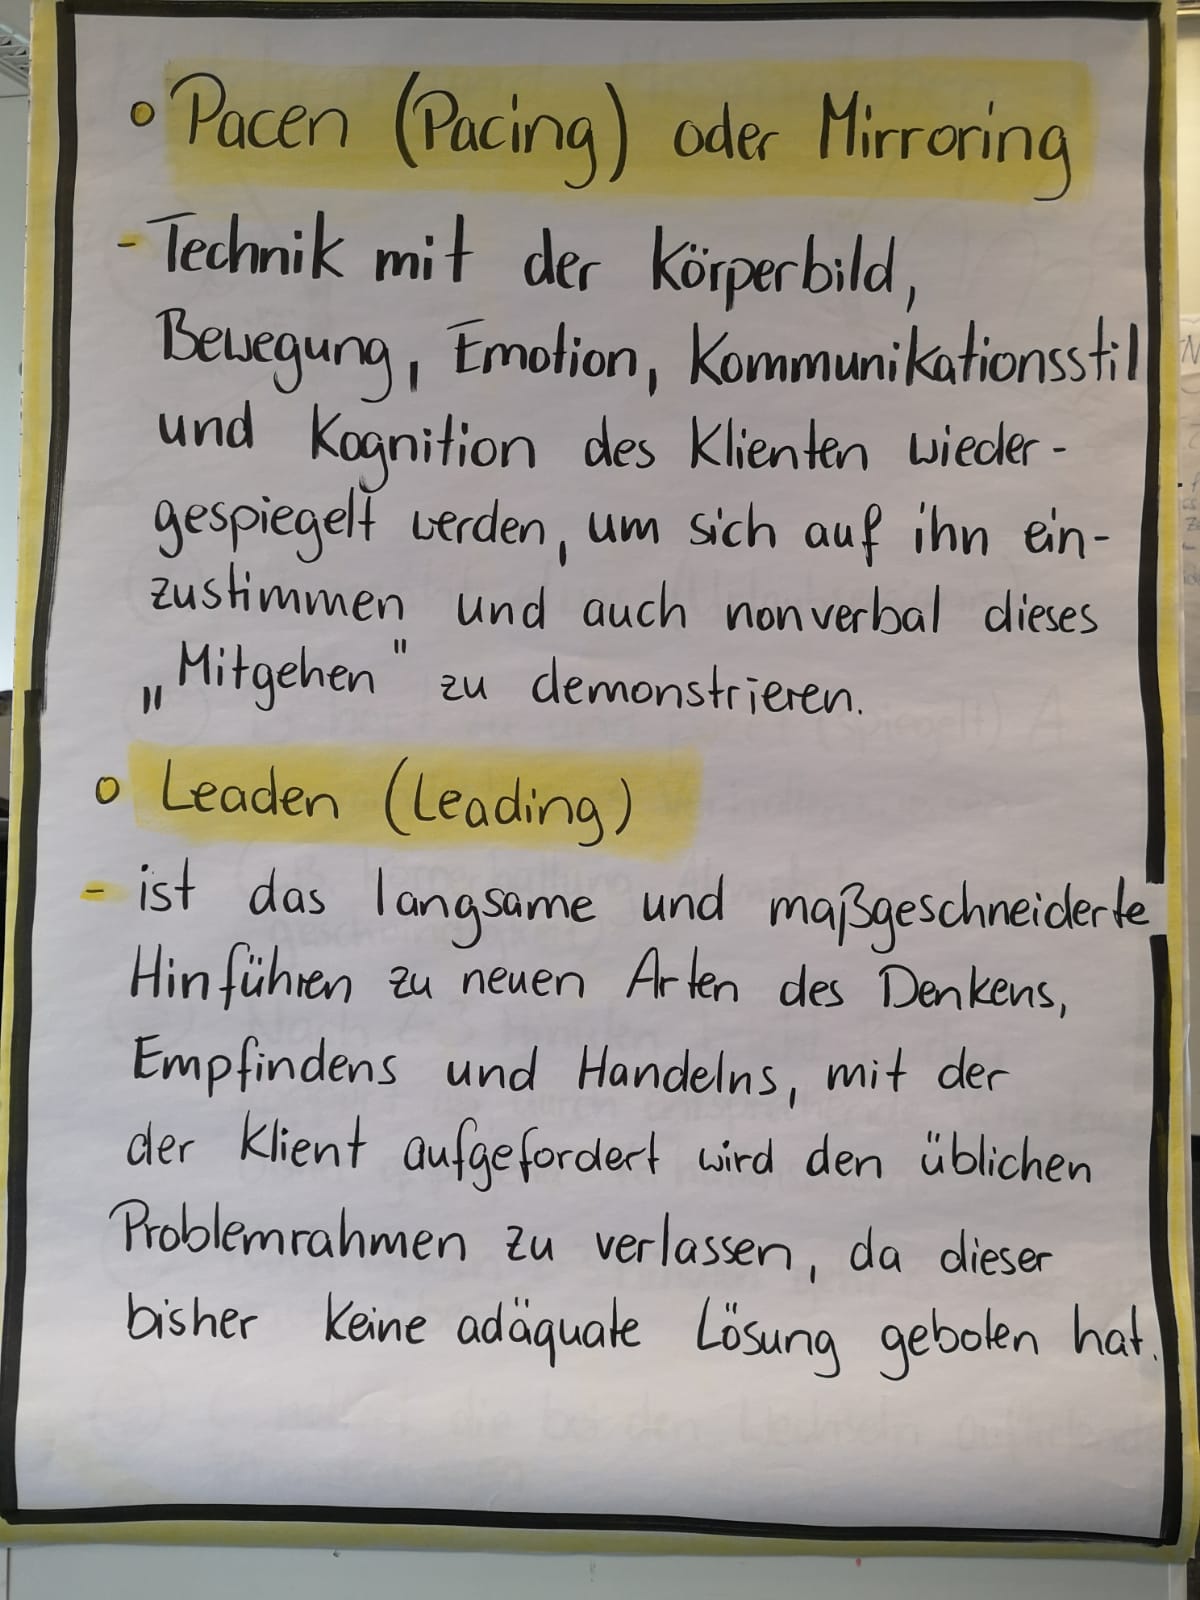 o Pacen (Pacing) oder Mirroring
- Technik mit der Körperbild,
Bewegung, Emotion, Kommunikationsstil
und Kognition des Klienten wieder-
gespiegelt werden, um sich auf ihn ein-
zustimmen und auch nonverbal dieses
„Mitgehen" zu demonstrieren.
o Leaden (Leading)
- ist das langsame und maßgeschneiderte
Hinführen zu neuen Arten des Denkens,
Empfindens und Handelns, mit der
der Klient aufgefordert wird den üblichen
Problemrahmen zu verlassen, da dieser
bisher keine adäquate Lösung geboten hat.